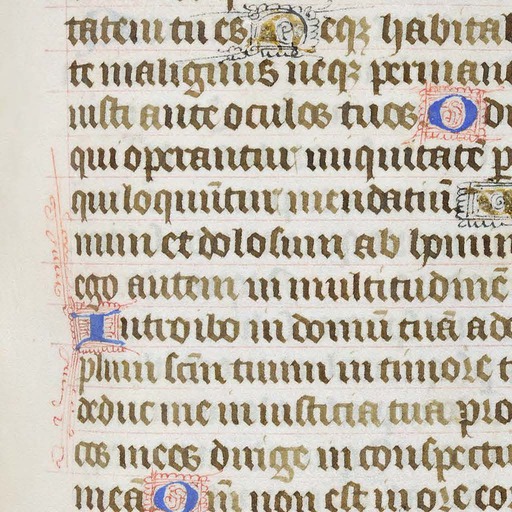 tatem tu es Neqz habita
te malignus neqz permane
iusti ante oculos tuos Od
qui operantur iniquitate p
qui loquūtur mendatiū
num et dolosum ab homin
ego autem in multitudinē
Introibo in domū tuā ado
plum scm̄ tuum in timore t
deduc me in iusticia tua pro
os meos dirige in conspectu
meā Qm̄ non est in ore eo